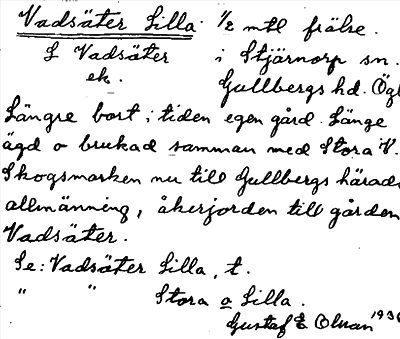 Vadsäter Lilla. 1/2 mtl frälse.
L Vadsäter i Stjärnorp sn.
ek. Gullbergs hd. Ög
Längre bort i tiden egen gård. Länge
ägd o brukad samman med Stora V.
Skogsmarken nu till Gullbergs härads
allmänning, åkerjorden till gården
Vadsäter.
Se: Vadsäter Lilla, t.
" " Stora o Lilla.
Gustaf E